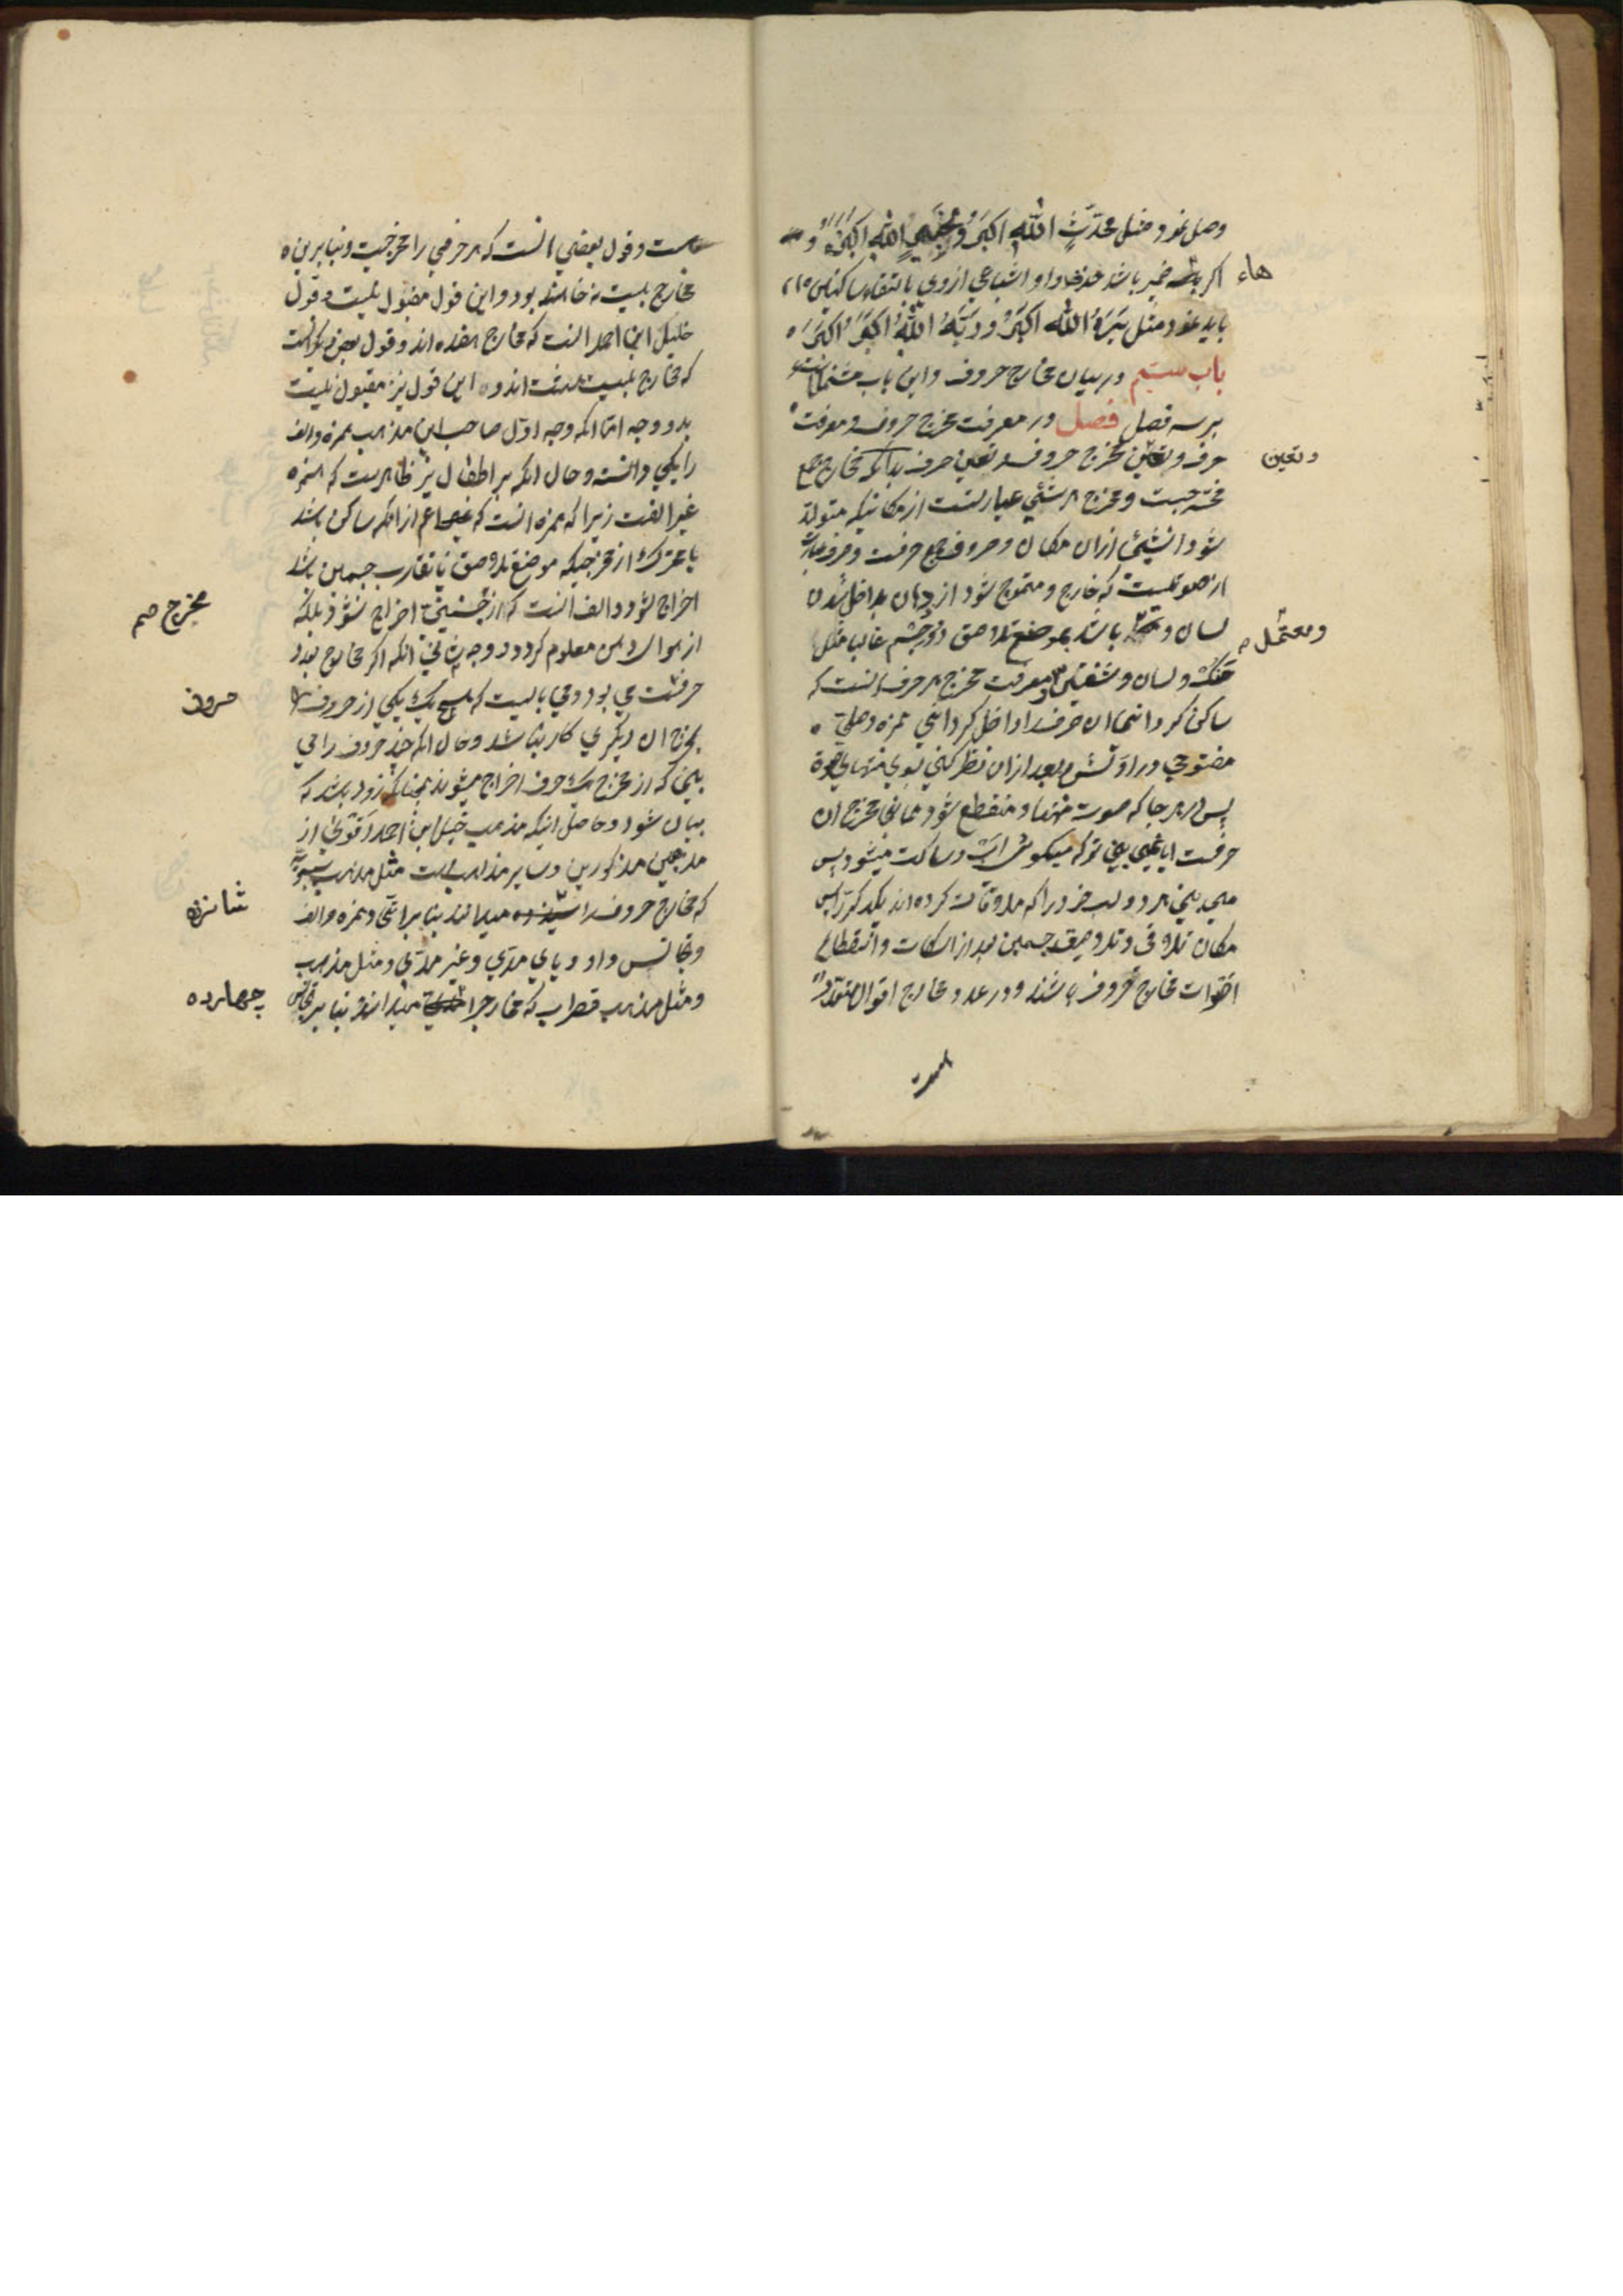 وصل نمود مثل محدثٍ الله اکبر و الله اکبر و
هاء
اکر ضمیر باشد حذف واو اشباعی از وی بالتقاء ساکنین
باید نمود مثل یره الله اکبر و ربه الله اکبر
باب بیستم در بیان مخارج حروف و این باب مشتمل است
بر سه فصل فصل در معرفت مخرج حروف و معرفت
حرف و تعیین مخرج حروف و تعین حرف بدانکه مخارج جمع
و تعین
مخرجست و مخرج هر شئی عبارتست از مکانیکه متولد
شود انشئی ازان مکان و حروف جمع حرفست و حرف عبارت
از صوتیست که خارج و متموج شود از دهان بداخل شدن
لسان و باشد بموضع تلاصق دو جسم غالب مثل
و معتمل
حنک و لسان و شفتین و معرفت مخرج هر حرف انست که
ساکن کردانی ان حرف را و داخل کردانی همزه وصلی
مفتوحی در اولش بعد ازان نظر کنی بسوی منتهای صوة
پس در هر جا که صوت منتها و منقطع شود همانجا مخرج ان
حرفست ایا نمی بینی تو که میکوئی اب و ساکت میشود پس
می بینی هر دو لب خود را که ملاقات کرده اند یکدیکر را پس
مکان تلاقی و تلاصق جسمین بعد از اسکات و انقطاع
اصوات مخارج حروف باشند و در عدد مخارج اقوال متعدد
است و قول بعضی انست که هر حرفی را مخرجیست و بنابرین
مخارج بیست نه خواهند بود و این قول مقبول نیست و قول
خلیل ابن احمد انست که مخارج هفده اند و قول بعض دیکر انست
که مخارج بیست هشت اند و این قول نیز مقبول نیست
بدو وجه اما انکه وجه اول صاحب این مذهب همزه و الف
را یکی دانسته و حال انکه بر اطفال نیز ظاهرست که همزه
غیر الفست زیرا که همزه انست که اعم از انکه ساکن باشد
یا متحرک از مخرجیکه موضع تلاصق یا تقارب جسمین باشد
اخراج شود و الف انست که از اخراج نشود بلکه
مخرج
از هوا دهن معلوم کردد و وجه ثانی انکه اکر مخارج بعدد
حرفست می بود می بایست که هیچ یک یکی از حروف را
حروف
بمخرج ان دیکری کار نباشد و حال انکه چند حروف را می
بینی که از مخرج یک حرف اخراج میشوند چنانکه زود باشد که
بیان شود و حاصل اینکه مذهب خلیل ابن احمد اقویٰ از
مذهبین مذکورین و سایر مذاهب است مثل مذهب سیبویه
که مخارج حروف را میداند بنابر اتحاد همزه و الف
شانزده
و تجانس واو و یای مدی و غیر مدی و مثل مذهب
و مثل مذهب قطرب که مخارج را میداند بنابر تجانس
چهارده
است